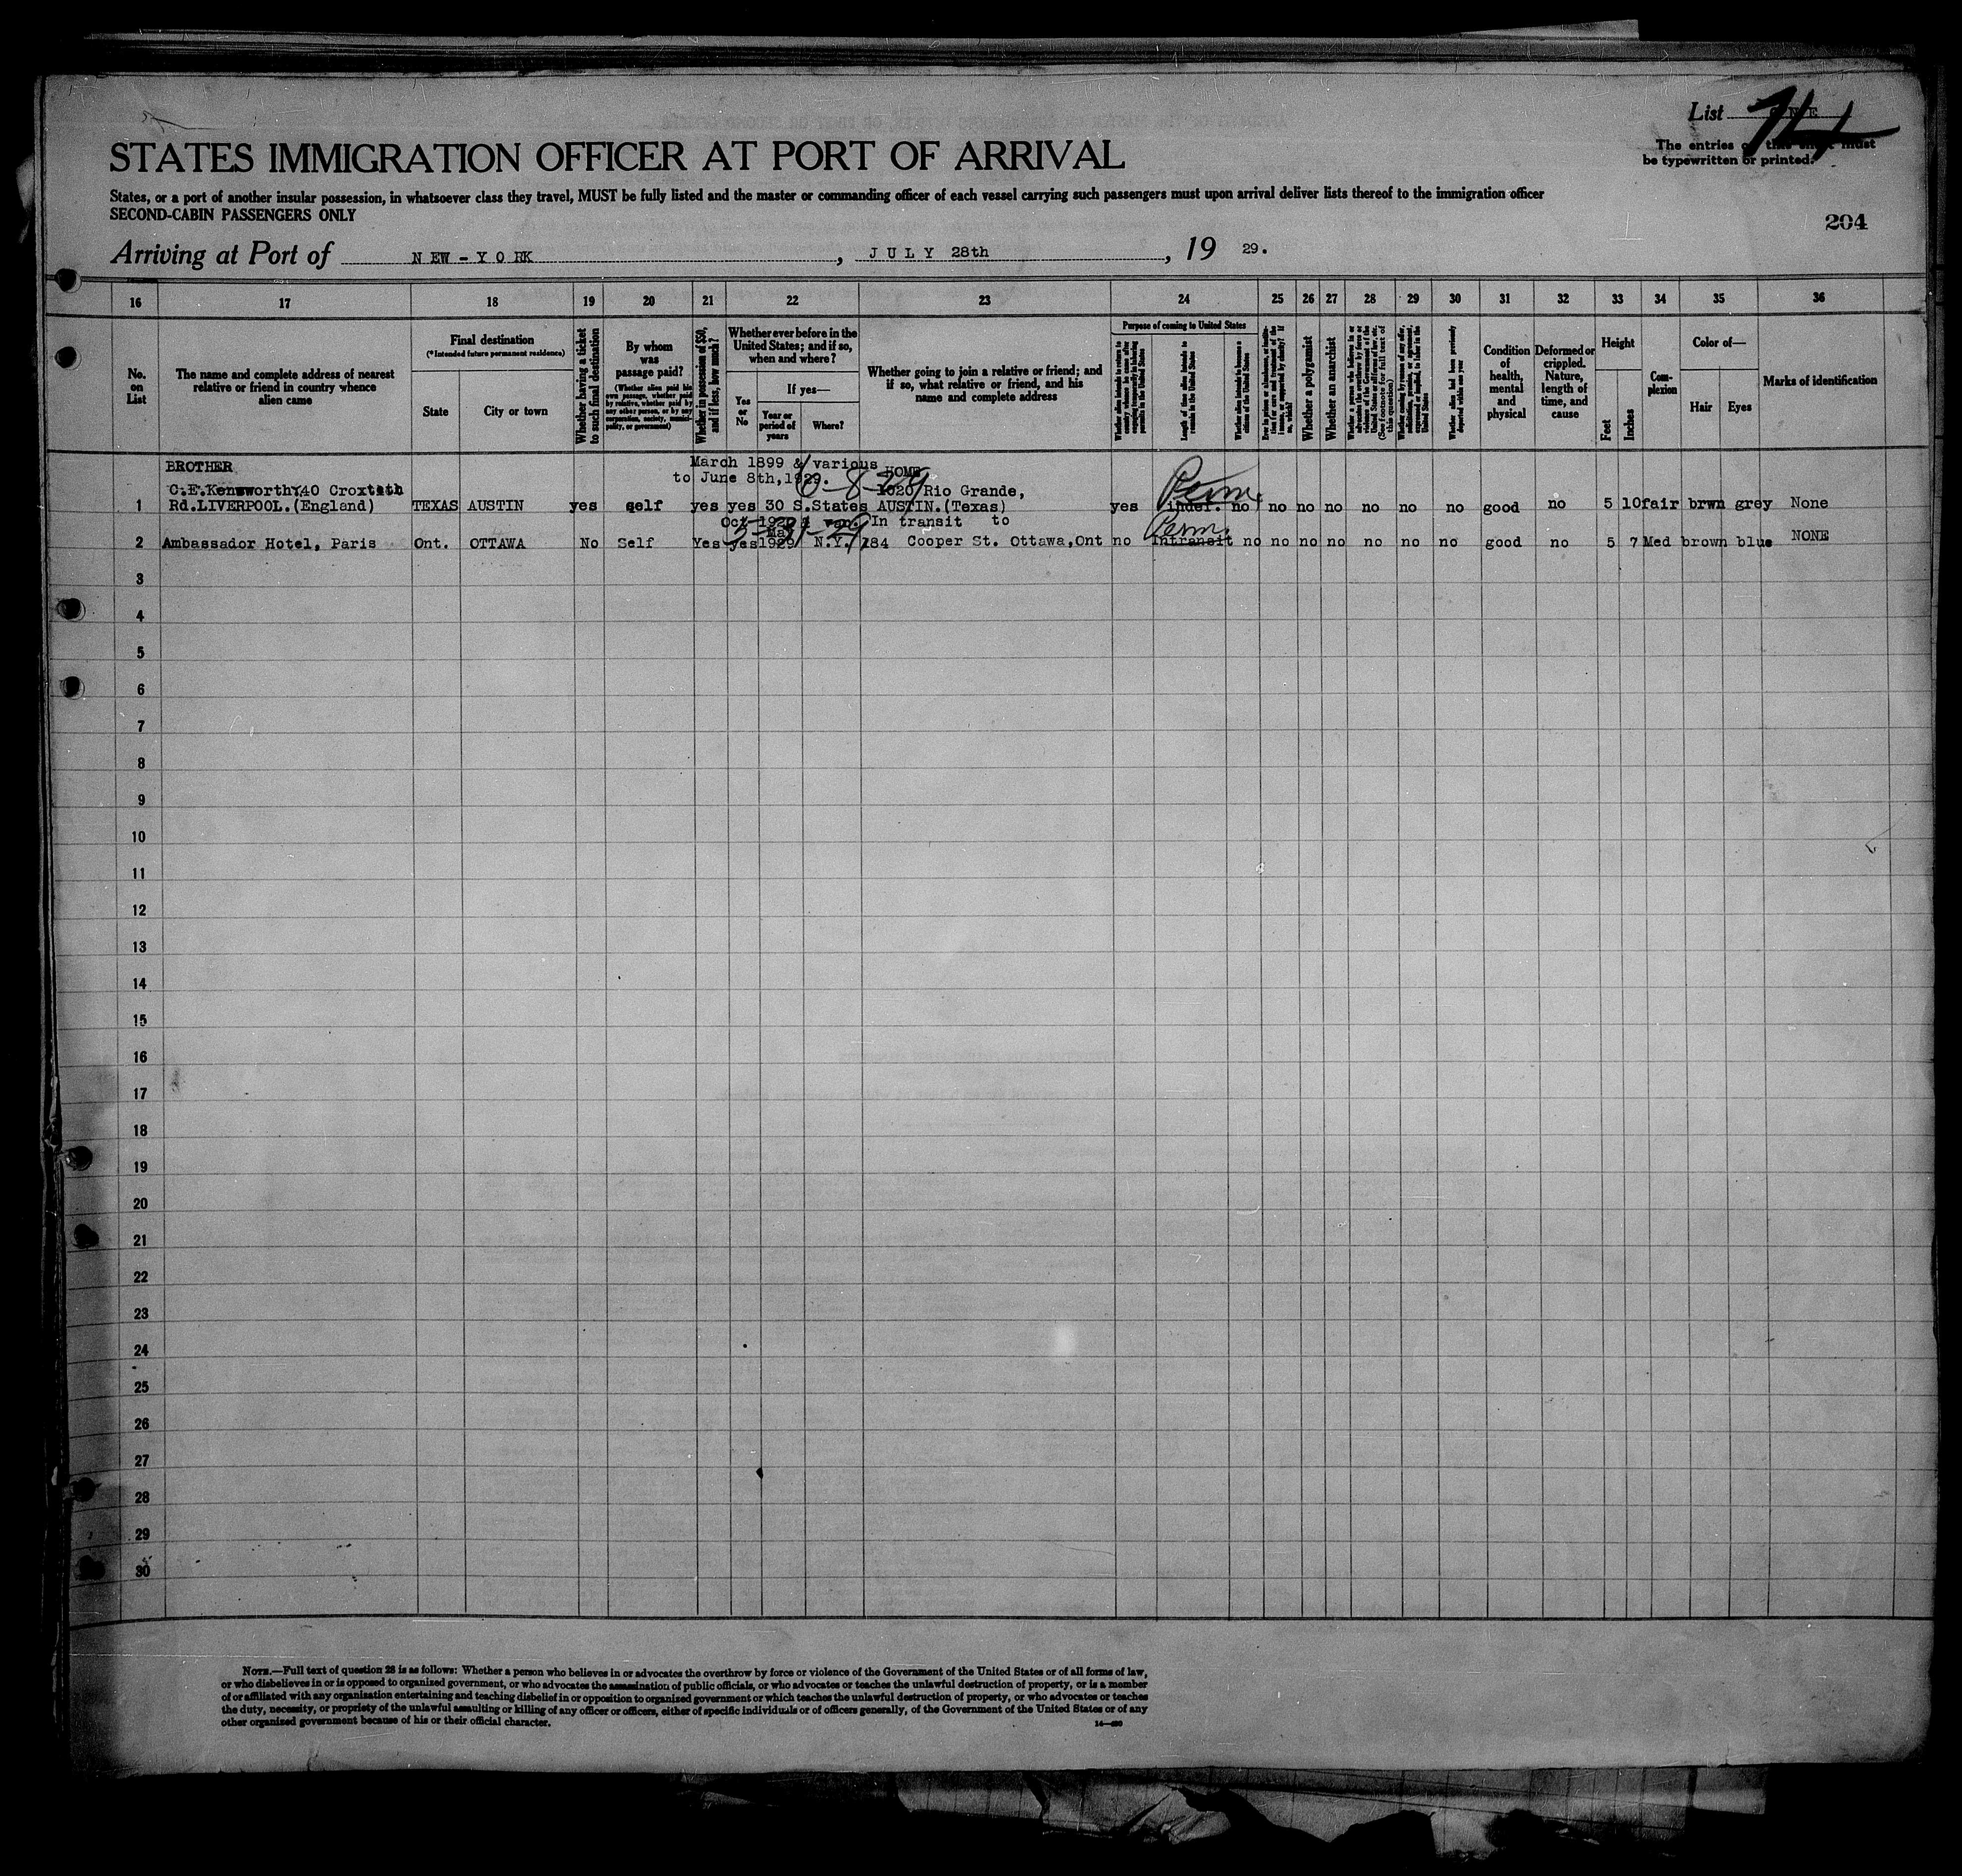 List ONE
74
The entries on this sheet must
be typewritten or printed.
STATES IMMIGRATION OFFICER AT PORT OF ARRIVAL
States, or a port of another insular possession, in whatsoever class they travel, MUST be fully listed and the master or commanding officer of each vessel carrying such passengers must upon arrival deliver lists thereof to the immigration officer
SECOND-CABIN PASSENGERS ONLY
204
Arriving at Port of NEW-YORK, JULY 28th, 19 29.
16 17 18 19 20 21 22 23 24 25 26 27 28 29 30 31 32 33 34 35 36
No. on List
The name and complete address of nearest relative or friend in country whence alien came
Final destination
(*Intended future permanent residence)
State
City or town
Whether having a ticket to such final destination
By whom was passage paid?
(Whether alien paid his own passage, whether paid by relative, whether paid by any other person, or by any corporation, society, municipality, or government)
Whether in possession of $50, and if less, how much?
Whether ever before in the United States; and if so, when and where?
Yes or No
If yes—
Year or period of years
Where?
Whether going to join a relative or friend; and if so, what relative or friend, and his name and complete address
Purpose of coming to United States
Length of time alien intends to remain in the United States
Whether alien intends to become a citizen of the United States
Whether a polygamist
Whether an anarchist
Whether alien had been previously deported within one year
Condition of health, mental and physical
Deformed or crippled. Nature, length of time, and cause
Height
Feet
Inches
Complexion
Color of—
Hair
Eyes
Marks of identification
BROTHER March 1899 & various HOME
C.E.Kenworthy.40 Croxteth to June 8th,1929. 6-8-29 1020 Rio Grande, Perm.
1 Rd.LIVERPOOL.(England) TEXAS AUSTIN yes self yes yes 30 S.States AUSTIN.(Texas) yes indef. no no no no no no no good no 5 10 fair brwn grey None
Oct 1920 In transit to Perm.
5-31-29
2 Ambassador Hotel, Paris Ont. OTTAWA No Self Yes yes 1929 N.Y. 184 Cooper St. Ottawa,Ont no Intransit no no no no no no no good no 5 7 Med brown blue NONE
3
4
5
6
7
8
9
10
11
12
13
14
15
16
17
18
19
20
21
22
23
24
25
26
27
28
29
30
NOTE.—Full text of question 28 is as follows: Whether a person who believes in or advocates the overthrow by force or violence of the Government of the United States or of all forms of law,
or who disbelieves in or is opposed to organized government, or who advocates the assassination of public officials, or who advocates or teaches the unlawful destruction of property, or is a member
of or affiliated with any organization entertaining and teaching disbelief in or opposition to organized government or which teaches the unlawful destruction of property, or who advocates or teaches
the duty, necessity, or propriety of the unlawful assaulting or killing of any officer or officers, either of specific individuals or of officers generally, of the Government of the United States or of any
other organized government because of his or their official character.